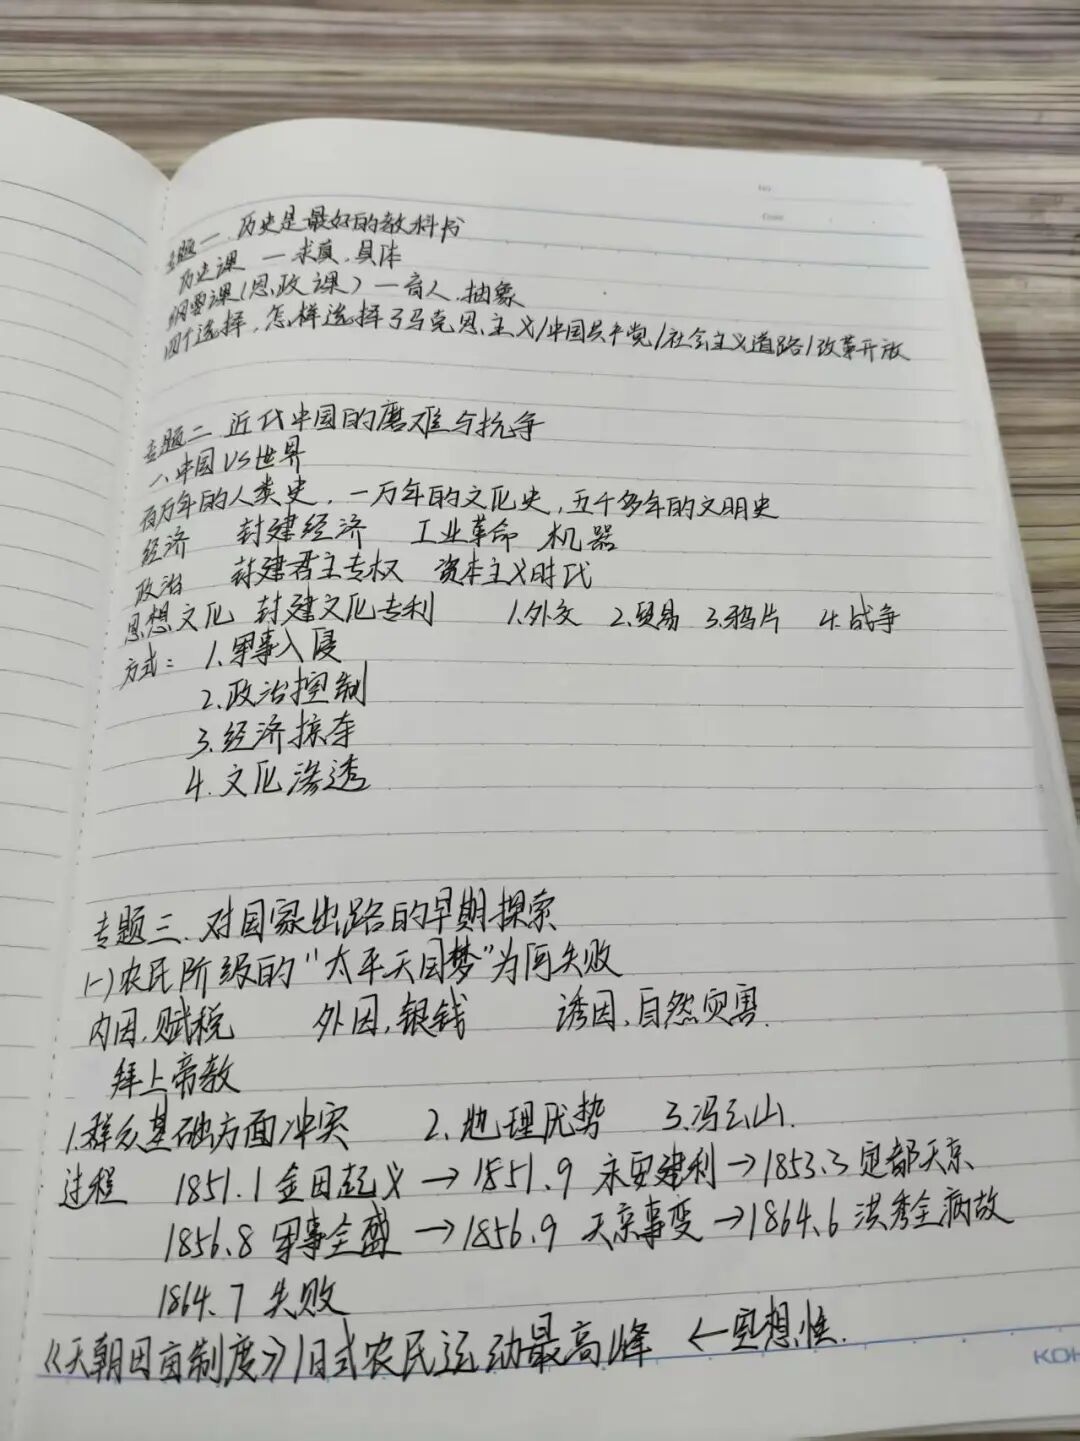 专题一. 历史是最好的教科书
历史课 — 求真.具体
纲要课(思政课) — 育人.抽象
四个选择, 怎样选择了马克思主义/中国共产党/社会主义道路/改革开放
专题二 近代中国的磨难与抗争
一、中国VS世界
百万年的人类史, 一万年的文化史, 五千多年的文明史
经济 封建经济 工业革命 机器
政治 封建君主专权 资本主义时代
思想文化 封建文化专利 1.外交 2.贸易 3.鸦片 4.战争
方式: 1.军事入侵
2.政治控制
3.经济掠夺
4.文化渗透
专题三. 对国家出路的早期探索
(一)农民阶级的"太平天国梦"为何失败
内因.赋税 外因.银钱 诱因.自然灾害.
拜上帝教
1.群众基础方面冲突 2.地理优势 3.冯云山.
过程 1851.1 金田起义→1851.9 永安建制→1853.3 定都天京
1856.8 军事全盛→1856.9 天京事变→1864.6 洪秀全病故
1864.7 失败
《天朝田亩制度》旧式农民运动最高峰 ←空想性.